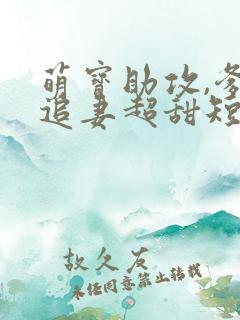 萌寶助攻,爹
追妻超甜短
故久友
未经同意禁止转载